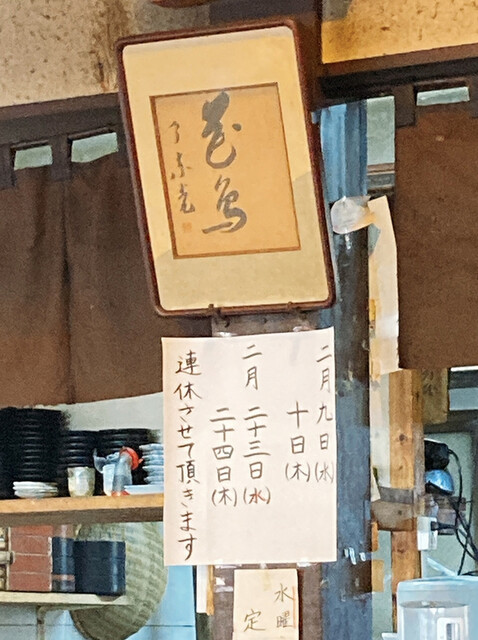 花鳥
二月九日(水)
十日(木)
二月二十三日(水)
二十四日(木)
連休させて頂きます
水曜
定